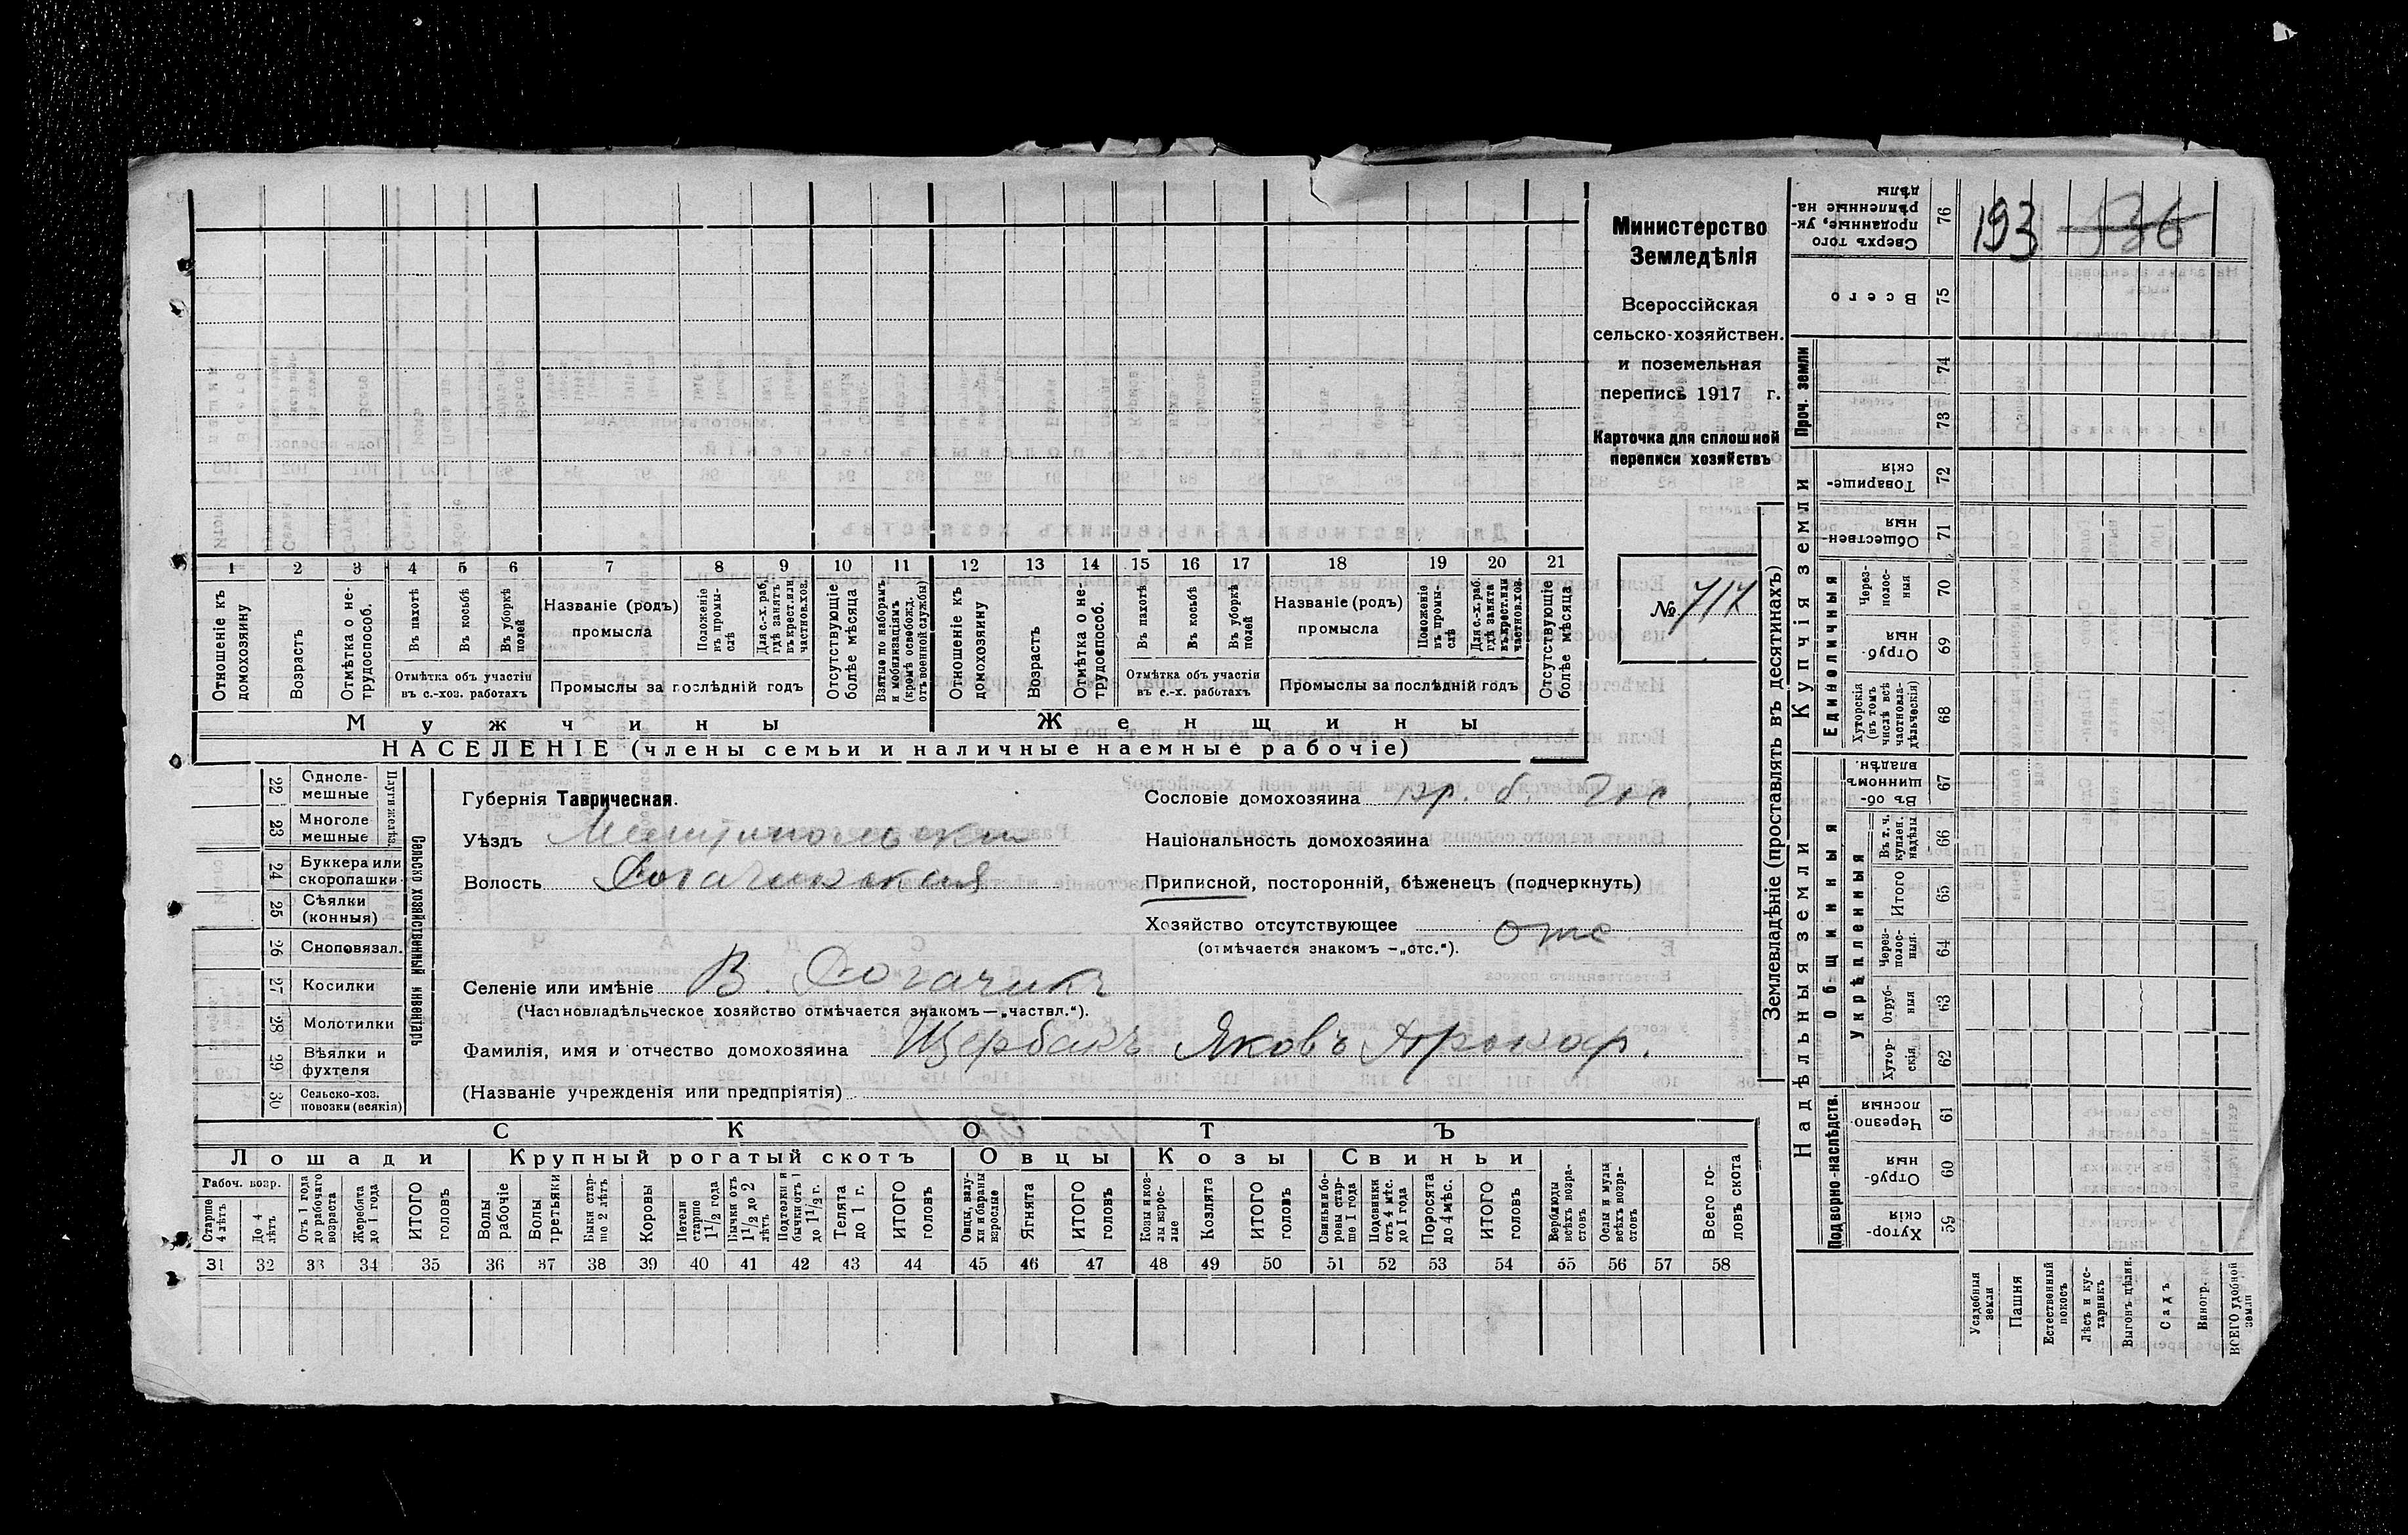 Министерство
Земледѣлія
Всероссійская
сельско-хозяйствен.
и поземельная
перепись 1917 г.
Карточка для сплошной
переписи хозяйствъ
№ 717
1 2 3 4 5 6 7 8 9 10 11 12 13 14 15 16 17 18 19 20 21
Отношеніе къ домохозяину
Возрастъ
Отмѣтка о не-трудоспособ.
Въ пахотѣ
Въ косьбѣ
Въ уборкѣ полей
Отмѣтка объ участіи
въ с.-хоз. работахъ
Названіе (родъ)
промысла
Положеніе въ промы-слѣ
Для с.-х. раб. гдѣ занятъ въ крест. или частнов. хоз.
Промыслы за послѣдній годъ
Отсутствующіе болѣе мѣсяца
Взятые по наборамъ и мобилизаціямъ (кромѣ освобожд. отъ военной службы)
Отношеніе къ домохозяину
Возрастъ
Отмѣтка о не-трудоспособ.
Въ пахотѣ
Въ косьбѣ
Въ уборкѣ полей
Отмѣтка объ участіи
въ с.-х. работахъ
Названіе (родъ)
промысла
Положеніе въ промы-слѣ
Для с.-х. раб. гдѣ занята въ крест. или частнов. хоз.
Промыслы за послѣдній годъ
Отсутствующіе болѣе мѣсяца
Мужчины Женщины
НАСЕЛЕНІЕ (члены семьи и наличные наемные рабочіе)
22 Одноле-мешные
23 Многоле мешные
Плуги желѣз.
24 Буккера или скоропашки
25 Сѣялки (конныя)
26 Сноповязал.
27 Косилки
28 Молотилки
29 Вѣялки и фухтеля
30 Сельско-хоз. повозки (всякія)
Сельско хозяйственный инвентарь
Губернія Таврическая.
Уѣздъ Мелитопольскій
Волость Рогачикская
Селеніе или имѣніе В. Рогачикъ
(Частновладѣльческое хозяйство отмѣчается знакомъ—„частвл.“).
Фамилія, имя и отчество домохозяина Щербакъ Яковъ
(Названіе учрежденія или предпріятія)
Сословіе домохозяина кр. б. Гос.
Національность домохозяина
Приписной, посторонній, бѣженецъ (подчеркнуть)
Хозяйство отсутствующее отс
(отмѣчается знакомъ —„отс.“).
СКОТЪ
Лошади Крупный рогатый скотъ Овцы Козы Свиньи
Рабоч. возр.
Старше 4 лѣтъ
До 4 лѣтъ
Отъ 1 года до рабочаго возраста
Жеребята до 1 года
ИТОГО головъ
Волы рабочіе
Волы третьяки
Быки стар-ше 2 лѣтъ
Коровы
Нетели старше 1 1/2 года
Бычки отъ 1 1/2 до 2 лѣтъ
Подтелки и бычки отъ 1 до 1 1/2 г.
Телята до 1 г.
ИТОГО головъ
Овцы, валу-хи и бараны взрослые
Ягнята
ИТОГО головъ
Козы и коз-лы взрос-лые
Козлята
ИТОГО головъ
Свиньи и бо-ровы стар-ше 1 года
Подсвинки отъ 4 мѣс. до 1 года
Поросята до 4 мѣс.
ИТОГО головъ
Верблюды всѣхъ возра-стовъ
Ослы и мулы всѣхъ возра-стовъ
Всего го-ловъ скота
31 32 33 34 35 36 37 38 39 40 41 42 43 44 45 46 47 48 49 50 51 52 53 54 55 56 57 58
Землевладѣніе (проставлять въ десятинахъ)
Надѣльныя земли Купчія земли Проч. земли
Подворно-наслѣдств.
Общинныя
Укрѣпленныя
Единоличныя
Хутор-скія 59
Отруб-ныя 60
Черезпо-лосныя 61
Хутор-скія 62
Отруб-ныя 63
Через-полос-ныя 64
Итого 65
Въ т. ч. куплен. надѣлы 66
Въ об-щинномъ владѣн. 67
Хуторскія (въ томъ числѣ всѣ частновла-дѣльческія) 68
Отруб-ныя 69
Через-полос-ныя 70
Обществен-ныя 71
Товарище-скія 72
73
74
Всего 75
Сверхъ того проданные, ук-рѣпленные на-дѣлы 76
193 536
Усадебныя земли
Пашня
Естественный покосъ
Лѣсъ и кус-тарникъ
Выгонъ цѣлин.
Садъ
Виногр.
ВСЕГО удобной земли